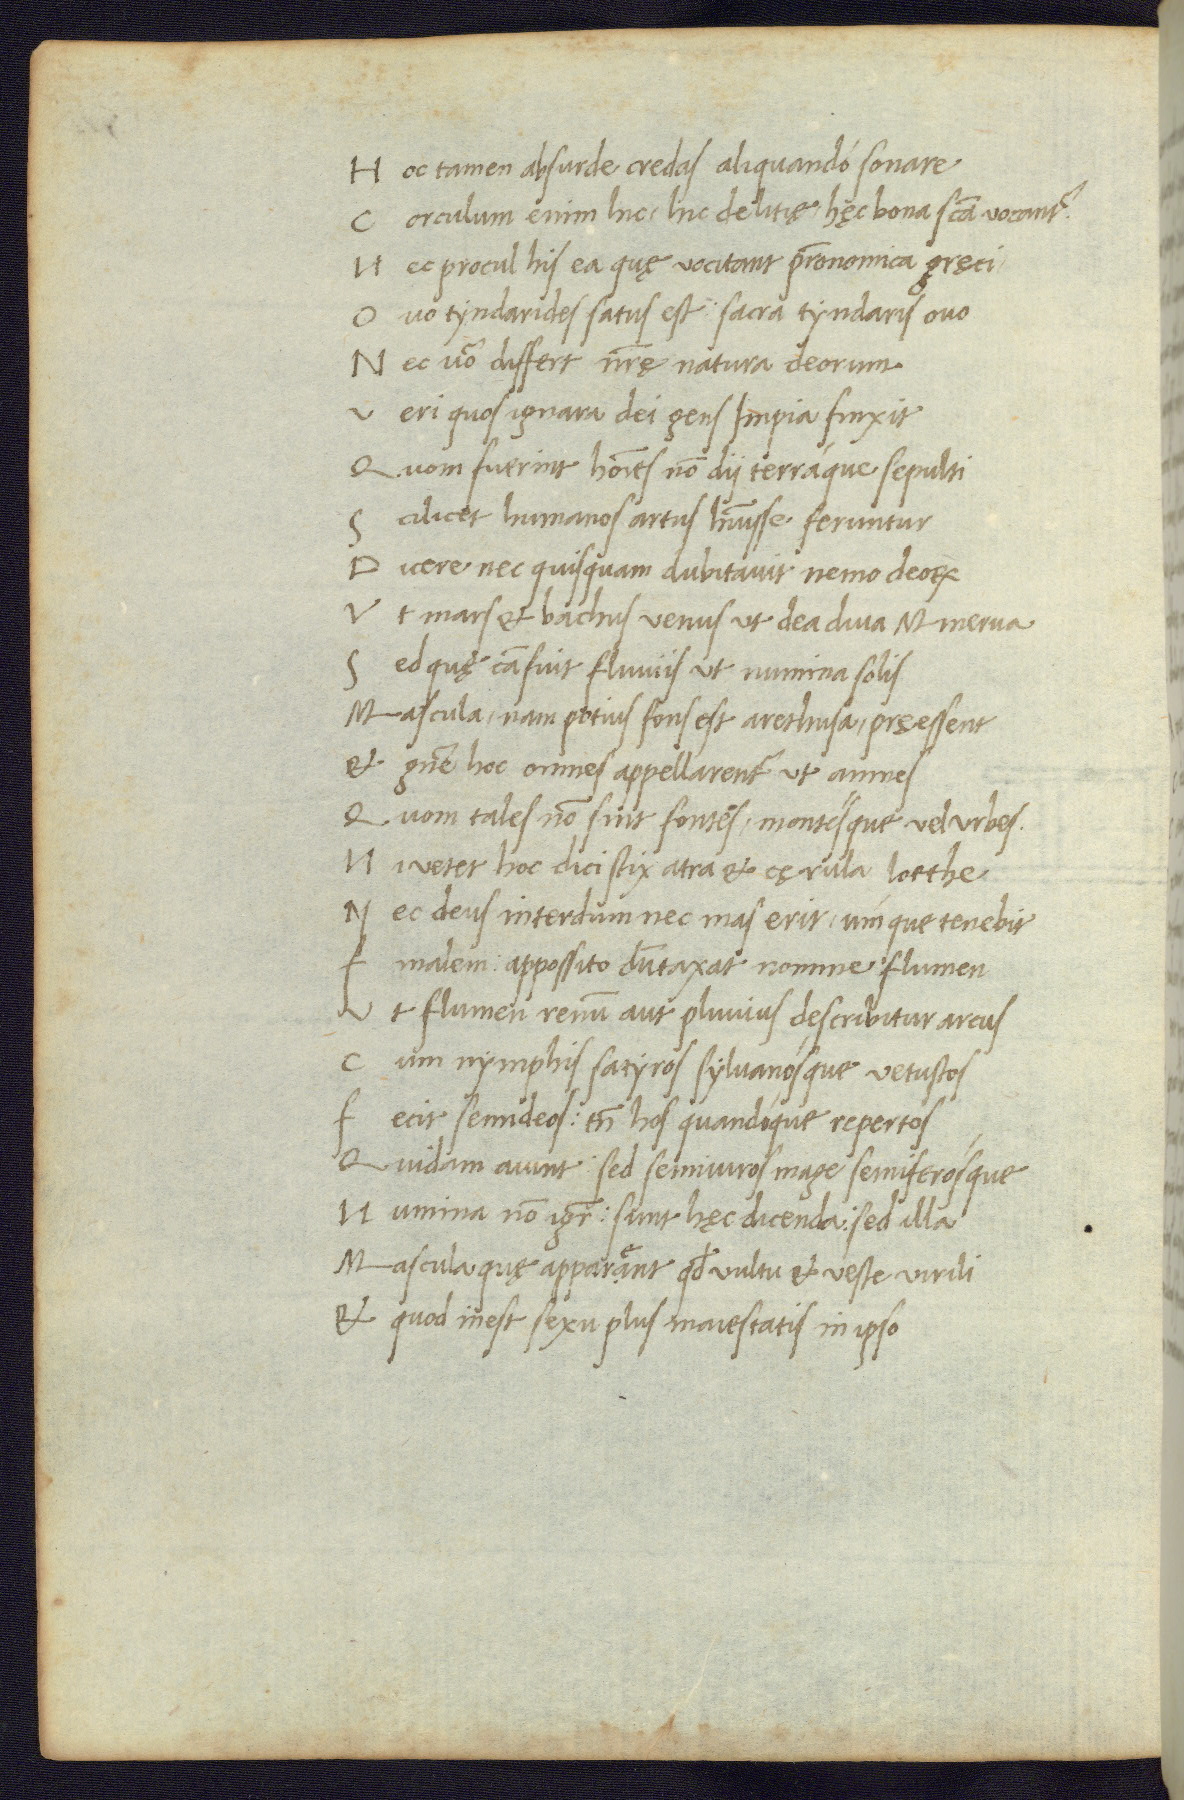 Hoc tamen absurde credas aliquandó sonare
Corculum enim hic, hic delitię, hęc bona scā vocant᷑.
Nec procul his ea quę vocitant pr̄onomica gręci,
Ovo tyndarides satus est: sacra tyndaris ovo
Nec uo᷑ differt nr̄ę natura deorum
veri quos ignara dei gens Impia finxit
Quom fuerint hoīes nō dij terráque sepulti
Scilicet humanos artus hūisse feruntur
Dicere nec quisquam dubitavit nemo deoꝝ
Vt mars & bachus venus ut dea diva Minerva
Sed quę cā fuit fluviis ut numina solis
Mascula, nam potius fons est arethusa, pręessent
& gn̄e hoc omnes appellarent᷑ ut amnes
Quom tales nō sint fontes, montésque vel vrbes.
Ni vetet hoc dici stix atra & cęrula loethe
Nec deus interdum nec mas erit, uim que tenebit
f malem: appossito dūtaxat nomine flumen
Vt flumen renū aut pluvius describitur arcus
Cum nymphis satyros sylvanósque vetustos
fecit semideos: tn̄ hos quandóque repertos
Quidam aiunt: sed semiviros mage semiferósque
Numina nō igr̄: sunt hęc dicenda: sed illa
Mascula quę apparent qđ vultu & veste virili
& quod inest sexu plus maiestatis in ipso